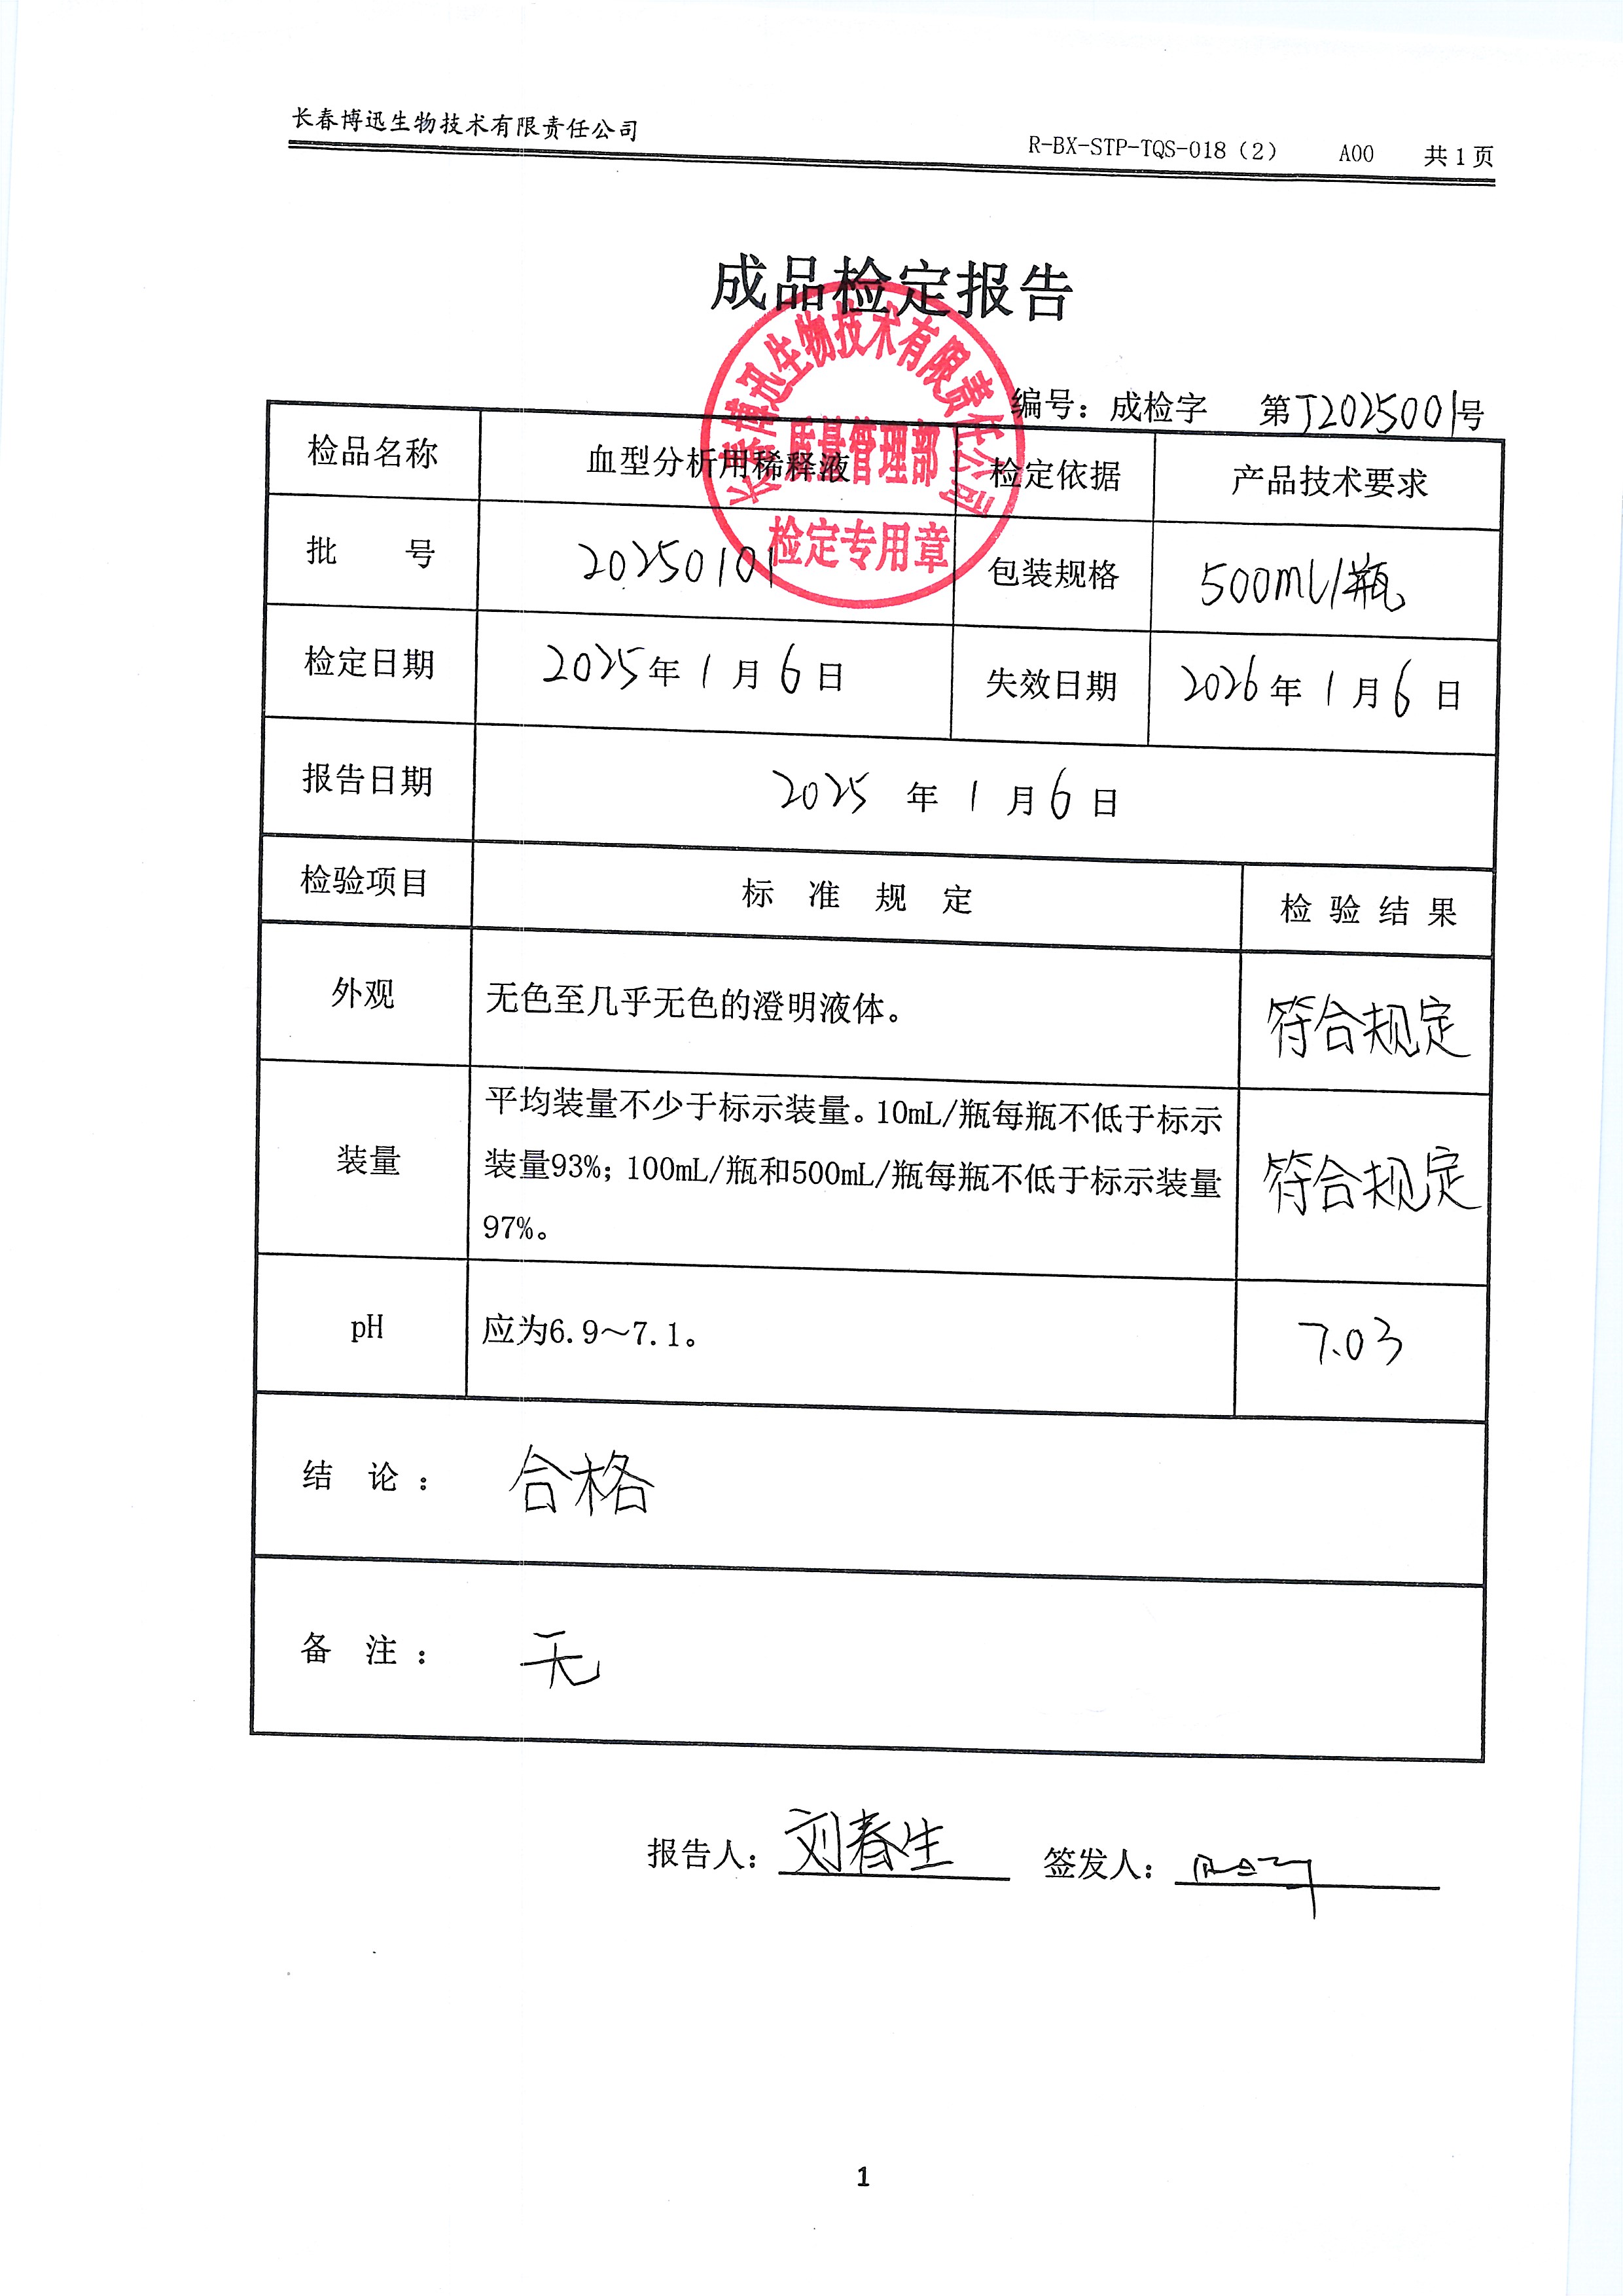 长春博迅生物技术有限责任公司 R-BX-STP-TQS-018（2） A00 共1页
成品检定报告
编号：成检字 第J2025001号
检品名称 血型分析用稀释液 检定依据 产品技术要求
批 号 20250101 包装规格 500mL/瓶
检定日期 2025年1月6日 失效日期 2026年1月6日
报告日期 2025年1月6日
检验项目 标准规定 检验结果
外观 无色至几乎无色的澄明液体。 符合规定
装量 平均装量不少于标示装量。10mL/瓶每瓶不低于标示
装量93%；100mL/瓶和500mL/瓶每瓶不低于标示装量
97%。
符合规定
pH 应为6.9～7.1。 7.03
结 论： 合格
备 注： 无
报告人：刘春生 签发人：
长春博迅生物技术有限责任公司
质量管理部
检定专用章
1